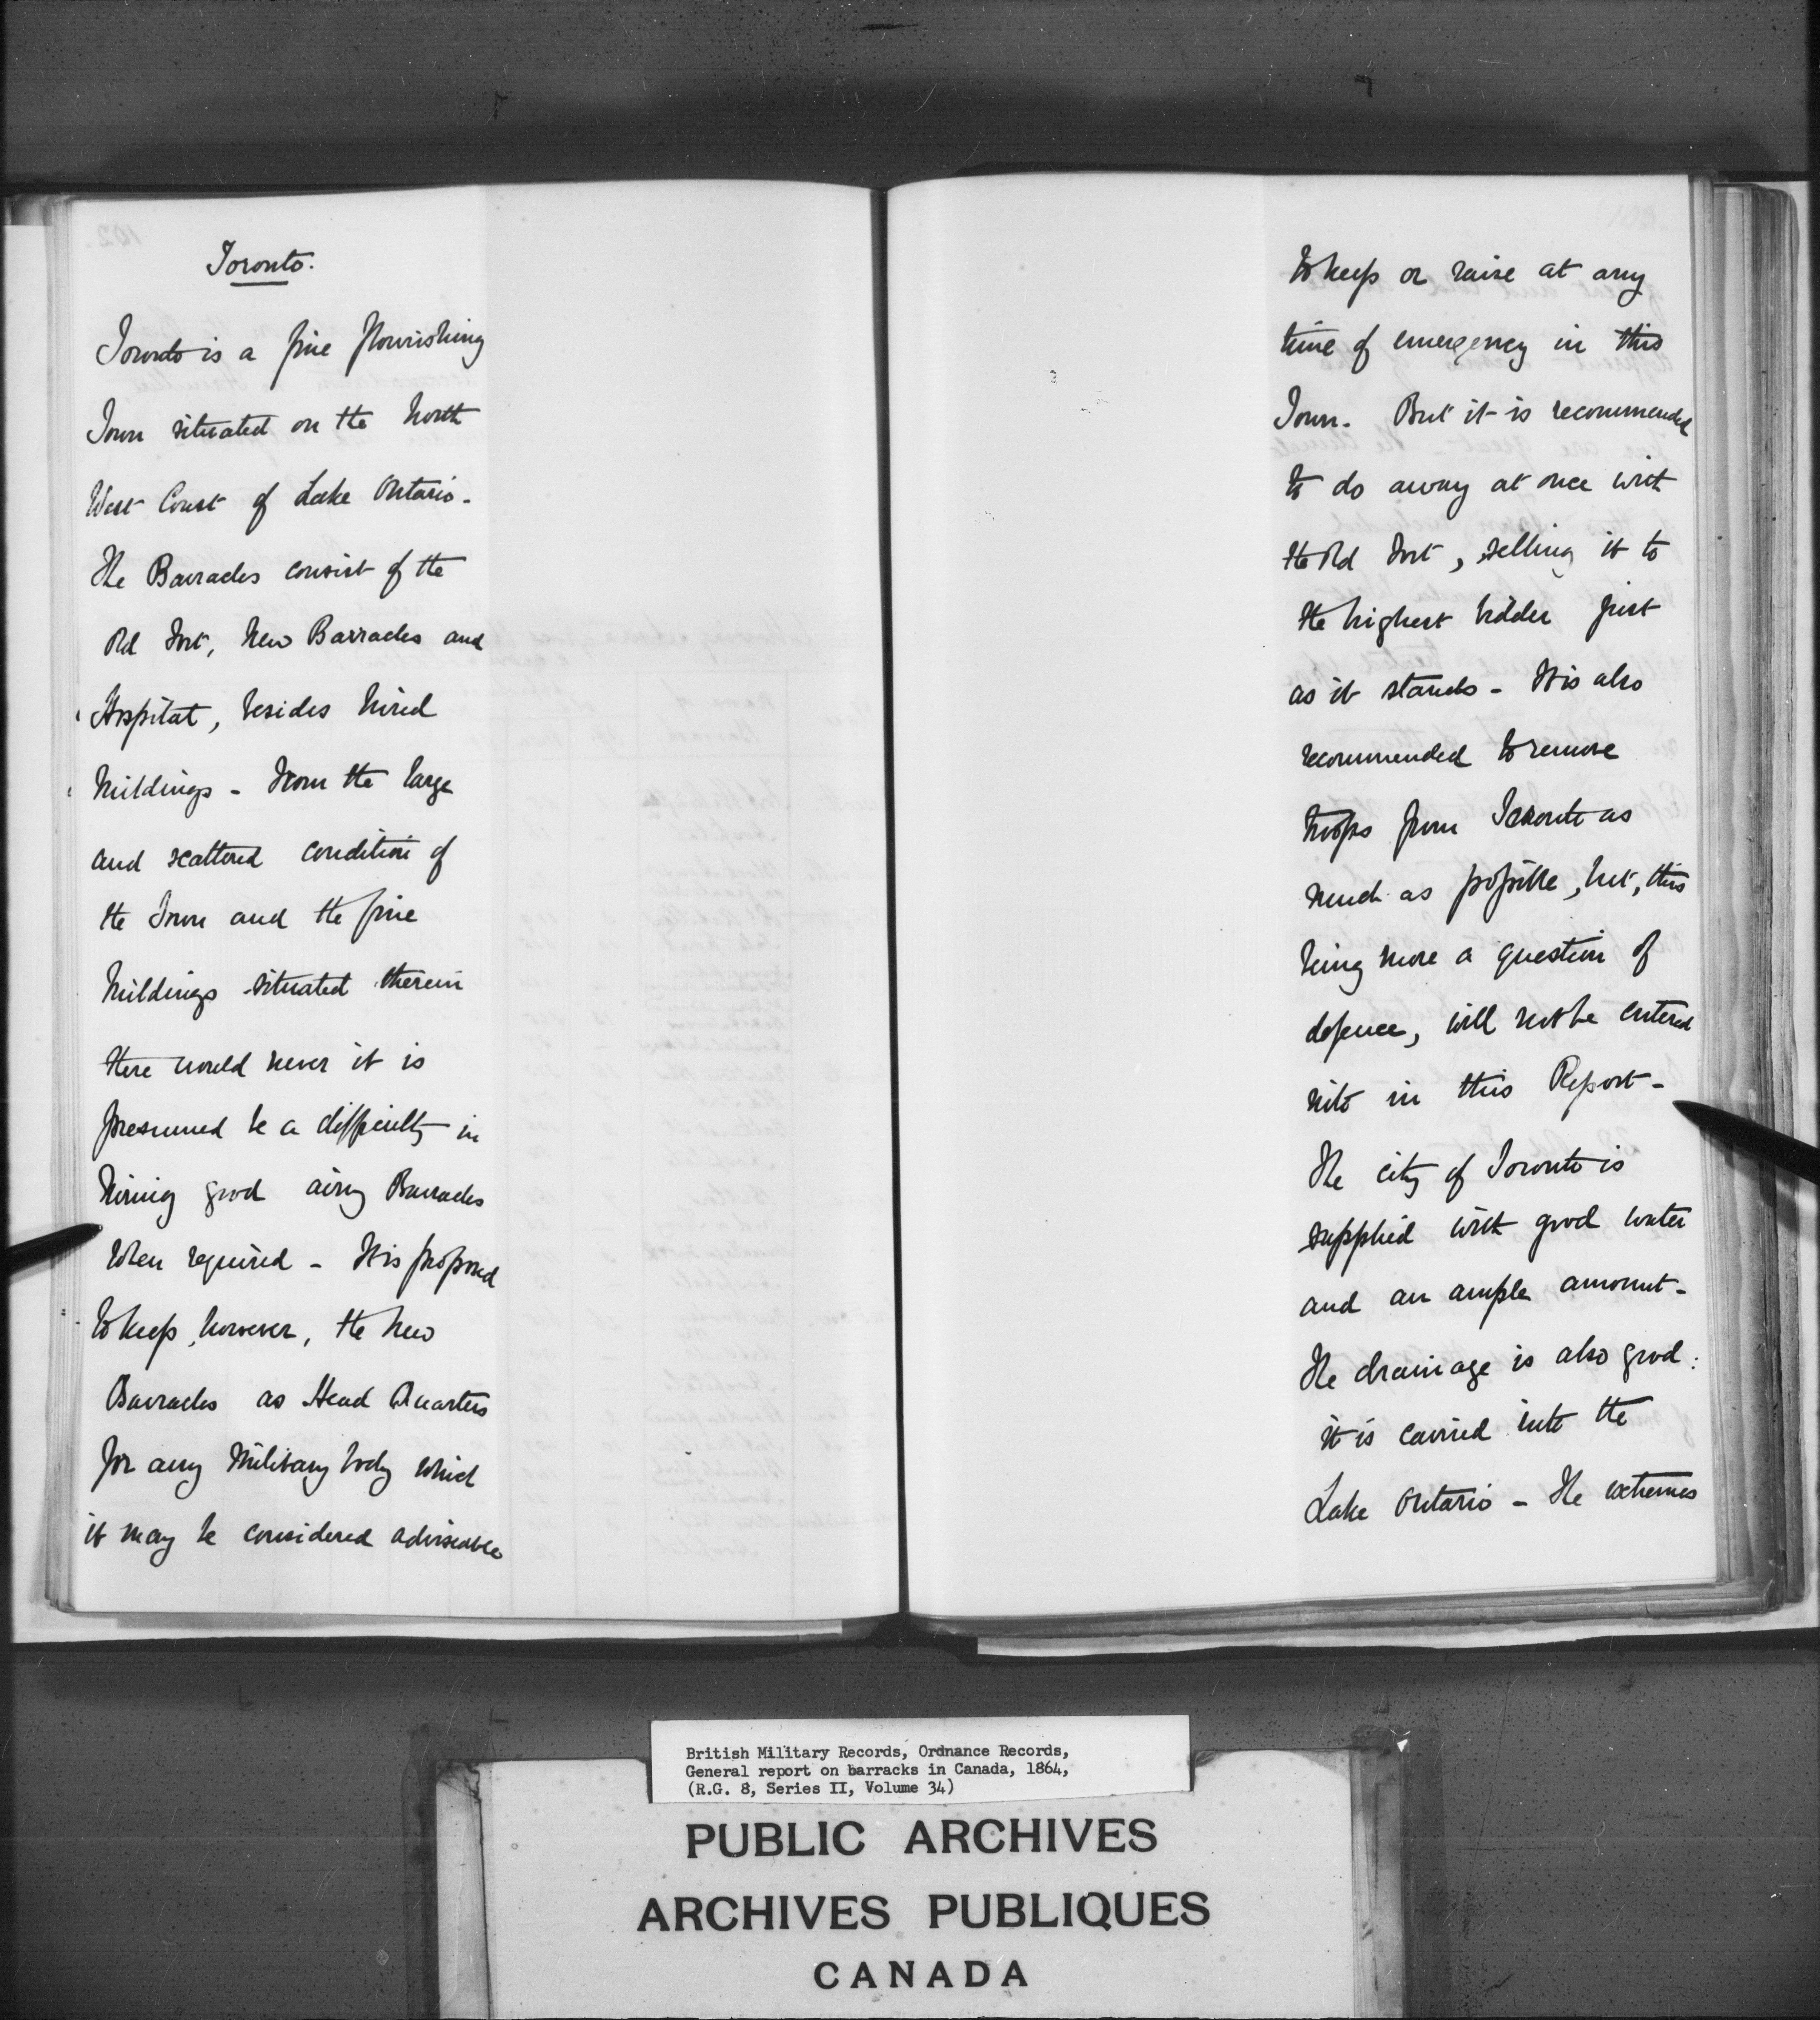 Toronto.
Toronto is a fine flourishing
Town situated on the North
West Coast of Lake Ontario -
The Barracks consist of the
Old Fort, New Barracks and
Hospital, besides hired
buildings - From the large
and scattered condition of
the Town and the fine
buildings situated therein
there would never it is
presumed be a difficulty in
hiring good airy Barracks
when required - It is proposed
to keep, however, the New
Barracks as Head Quarters
for any Military body which
it may be considered adviseable
to keep or raise at any
time of emergency in this
Town. But it is recommended
to do away at once with
the Old Fort, selling it to
the highest bidder just
as it stands - It is also
recommended to remove
troops from Toronto as
much as possible, but, this
being more a question of
defence, will not be entered
into in this Report -
The city of Toronto is
supplied with good water
and an ample amount -
The drainage is also good:
it is carried into the
Lake Ontario - The extremes
British Military Records, Ordnance Records,
General report on barracks in Canada, 1864,
(R.G. 8, Series II, Volume 34)
PUBLIC ARCHIVES
ARCHIVES PUBLIQUES
CANADA